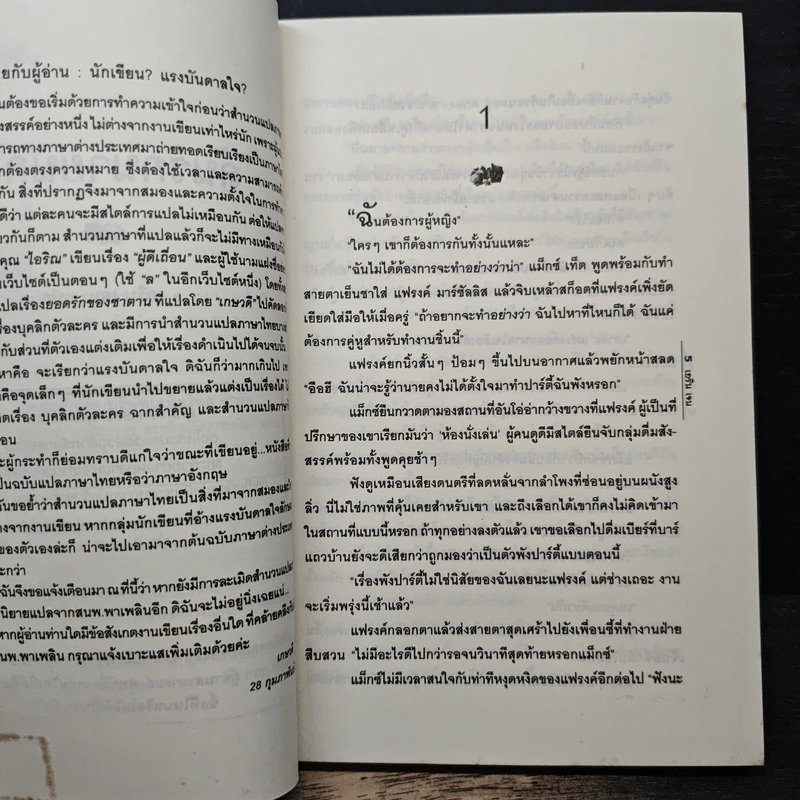 ยกับผู้อ่าน : นักเขียน? แรงบันดาลใจ?
นต้องขอเริ่มด้วยการทำความเข้าใจก่อนว่าสำนวนแปลภา
งสรรค์อย่างหนึ่ง ไม่ต่างจากงานเขียนเท่าไหร่นัก เพราะผู้
ารถทางภาษาต่างประเทศมาถ่ายทอดเรียบเรียงเป็นภาษาไ
กต้องตรงความหมาย ซึ่งต้องใช้เวลาและความสามารถ
กัน สิ่งที่ปรากฏจึงมาจากสมองและความตั้งใจในการทำ
ดีว่า แต่ละคนจะมีสไตล์การแปลไม่เหมือนกัน ต่อให้แปล
ยวกันก็ตาม สำนวนภาษาที่แปลแล้วก็จะไม่มีทางเหมือนกัน
คุณ "ไอริณ" เขียนเรื่อง "ผู้ดีเถื่อน" และผู้ใช้นามแฝงชื่อ
นเว็บไซต์เป็นตอนๆ (ใช้ "ล" ในอีกเว็บไซต์หนึ่ง) โดยทั้ง
แปลเรื่องยอดรักของซาตาน ที่แปลโดย "เกษวดี" ไปคัดลอก
รื่องบุคลิกตัวละคร และมีการนำสำนวนแปลภาษาไทยบาง
กับส่วนที่ตัวเองแต่งเติมเพื่อให้เรื่องดำเนินไปได้จนจบนั้น
หาคือ จะเรียกว่าแรงบันดาลใจ ดิฉันก็ว่ามากเกินไป เพ
คือจุดเล็กๆ ที่นักเขียนนำไปขยายแล้วแต่งเป็นเรื่องได้
ตเรื่อง บุคลิกตัวละคร ฉากสำคัญ และสำนวนแปลภาษาไ
อน
ะผู้กระทำก็ย่อมทราบดีแก่ใจว่าขณะที่เขียนอยู่...หนังสือ
ป็นฉบับแปลภาษาไทยหรือว่าภาษาอังกฤษ
ันขอย้ำว่าสำนวนแปลภาษาไทยเป็นสิ่งที่มาจากสมองและ
างจากงานเขียน หากกลุ่มนักเขียนที่อ้างแรงบันดาลใจลัก
ของตัวเองล่ะก็ น่าจะไปเอามาจากต้นฉบับภาษาต่างประเท
ะกว่า
ฉันจึงขอแจ้งเตือนมา ณ ที่นี้ว่า หากยังมีการละเมิดสำนวนแป
นิยายแปลจากสนพ.พาเพลินอีก ดิฉันจะไม่อยู่นิ่งเฉยแน่...
หากผู้อ่านท่านใดมีข้อสังเกตงานเขียนเรื่องอื่นใด ที่คล้ายคลึงกับ
นพ.พาเพลิน กรุณาแจ้งเบาะแสเพิ่มเติมด้วยค่ะ
เกษวดี
28 กุมภาพันธ์
1
"ฉันต้องการผู้หญิง"
"ใครๆ เขาก็ต้องการกันทั้งนั้นแหละ"
"ฉันไม่ได้ต้องการจะทำอย่างว่าน่า" แม็กซ์ เท็ต พูดพร้อมกับทำ
สายตาเย็นชาใส่ แฟรงค์ มาร์ซัลลิส แล้วจิบเหล้าสก็อตที่แฟรงค์เพิ่งยัด
เยียดใส่มือให้เมื่อครู่ "ถ้าอยากจะทำอย่างว่า ฉันไปหาที่ไหนก็ได้ ฉันแค่
ต้องการคู่หูสำหรับทำงานชิ้นนี้"
แฟรงค์ยกนิ้วสั้นๆ ป้อมๆ ขึ้นไปบนอากาศแล้วพยักหน้าสลด
"อือฮึ ฉันน่าจะรู้ว่านายคงไม่ได้ตั้งใจมาทำปาร์ตี้ฉันพังหรอก"
แม็กซ์ยืนกวาดตามองสถานที่อันโอ่อ่ากว้างขวางที่แฟรงค์ ผู้เป็นที่
ปรึกษาของเขาเรียกมันว่า 'ห้องนั่งเล่น' ผู้คนดูดีมีสไตล์ยืนจับกลุ่มดื่มสัง-
สรรค์พร้อมทั้งพูดคุยช้าๆ
ฟังดูเหมือนเสียงดนตรีที่ลดหลั่นจากลำโพงที่ซ่อนอยู่บนผนังสูง
ลิ่ว นี่ไม่ใช่ภาพที่คุ้นเคยสำหรับเขา และถึงเลือกได้เขาก็คงไม่คิดเข้ามา
ในสถานที่แบบนี้หรอก ถ้าทุกอย่างลงตัวแล้ว เขาขอเลือกไปดื่มเบียร์ที่บาร์
แถวบ้านยังจะดีเสียกว่าถูกมองว่าเป็นตัวพังปาร์ตี้แบบตอนนี้
"เรื่องพังปาร์ตี้ไม่ใช่นิสัยของฉันเลยนะแฟรงค์ แต่ช่างเถอะ งาน
จะเริ่มพรุ่งนี้เช้าแล้ว"
แฟรงค์กลอกตาแล้วส่งสายตาสุดเศร้าไปยังเพื่อนซี้ที่ทำงานฝ่าย
สืบสวน "ไม่มีอะไรดีไปกว่ารอจนวินาทีสุดท้ายหรอกแม็กซ์"
แม็กซ์ไม่มีเวลาสนใจกับท่าทีหงุดหงิดของแฟรงค์อีกต่อไป "ฟังนะ
5 เกย์ริน เจน